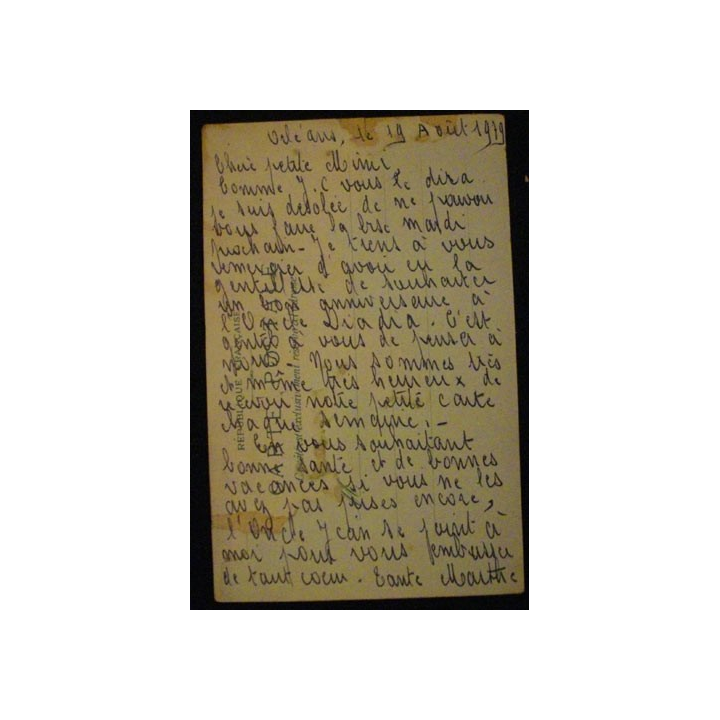 Orléans, le 19 Août 1919
Chère petite Mimi
Comme J. C vous le dira
je suis désolée de ne pouvoir
vous faire la bise mardi
prochain - Je tiens à vous
remercier d'avoir eu la
gentillesse de souhaiter
un bon anniversaire à
l'Oncle. C'est
gentil à vous de penser à
nous. Nous sommes très
et même très heureux de
revoir notre petite carte
chaque semaine. -
En vous souhaitant
bonne santé et de bonnes
vacances si vous ne les
avez pas prises encore,
l'Oncle Jean se joint à
moi pour vous embrasser
de tout coeur. Tante Marthe
RÉPUBLIQUE FRANÇAISE
CARTE POSTALE